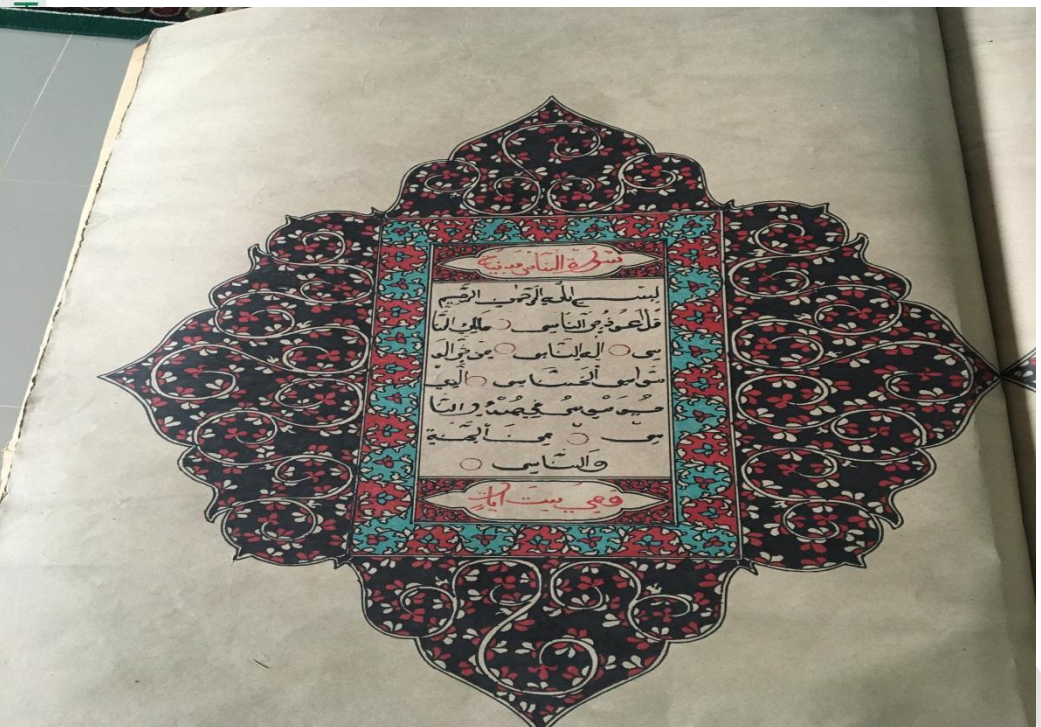 سورة الناس مدنية
بسم الله الرحمن الرحيم
قل اعوذ برب الناس ملك النا
س اله الناس من شر الو
سواس الخناس الذي
يوسوس في صدور النا
س من الجنة
والناس
وهي ست ايات